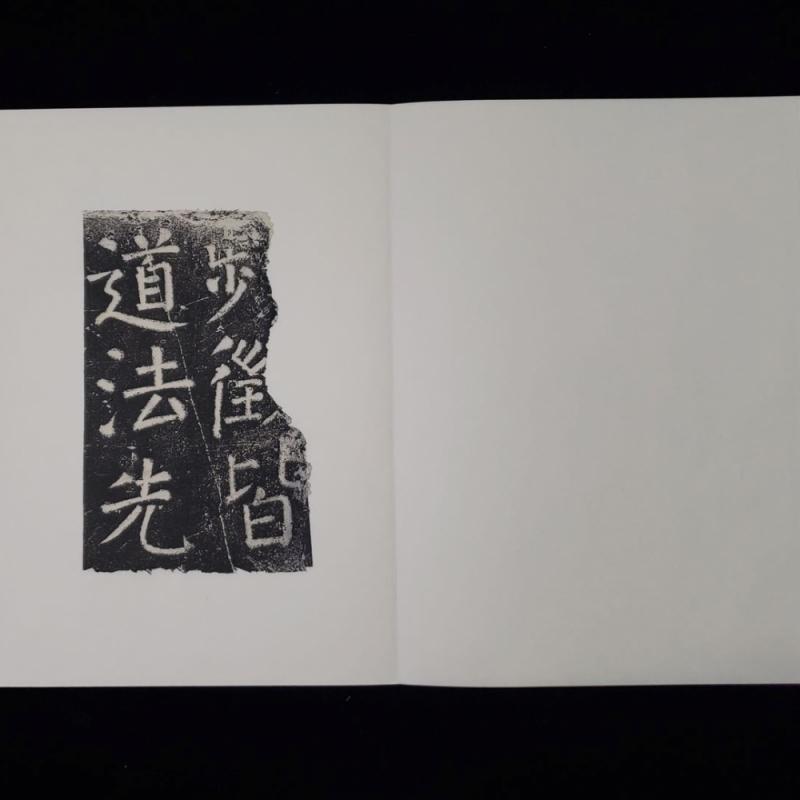 步皆
道法先